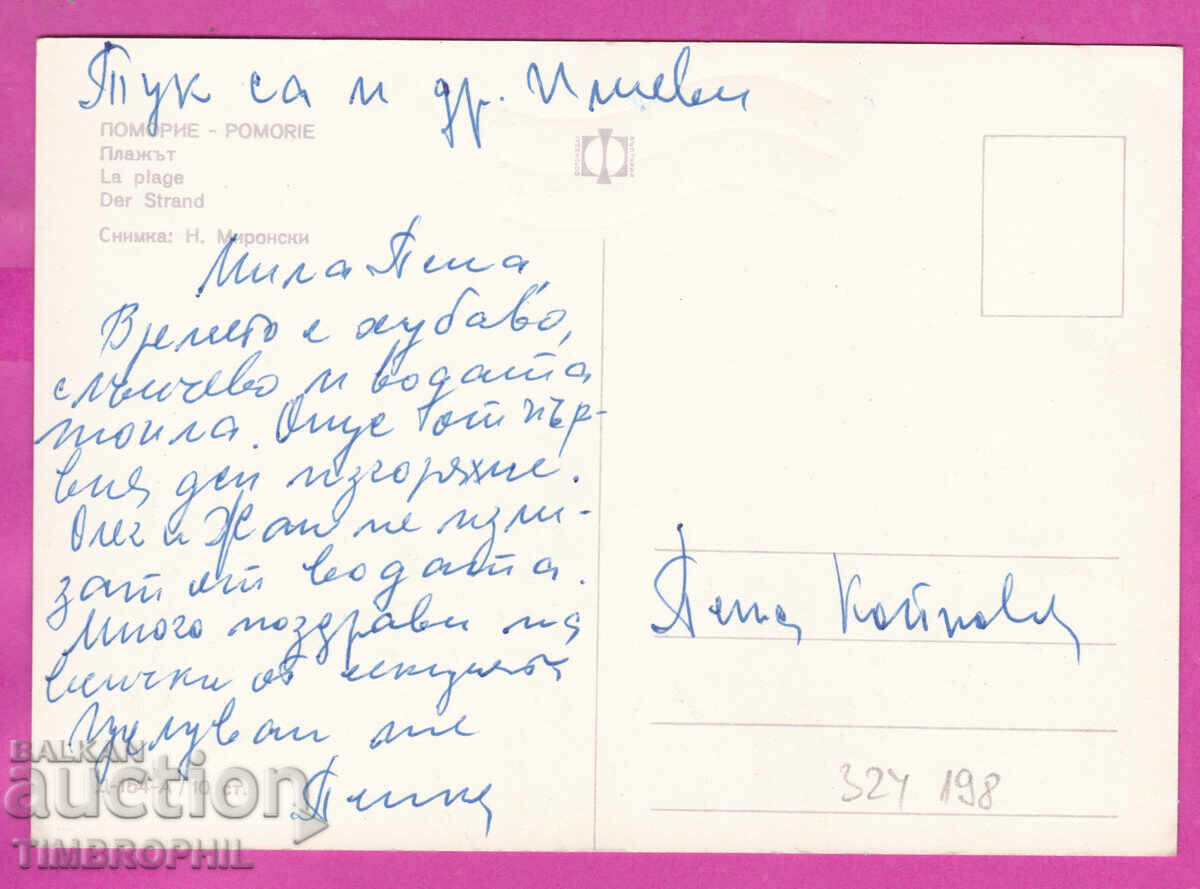 Тук са и др. Илиеви
ПОМОРИЕ - POMORIE
Плажът
La plage
Der Strand
Снимка: Н. Миронски
Мила Пепа,
Времето е хубаво,
слънчево и водата
топла. Още от пър-
вия ден изгоряхме.
Олег и Жан не изли-
зат от водата.
Много поздрави на
всички от
Целувам те
Пепа Койнова
Д-164-А / 10 ст.
324 198
BALKAN
auction
TIMBROPHIL